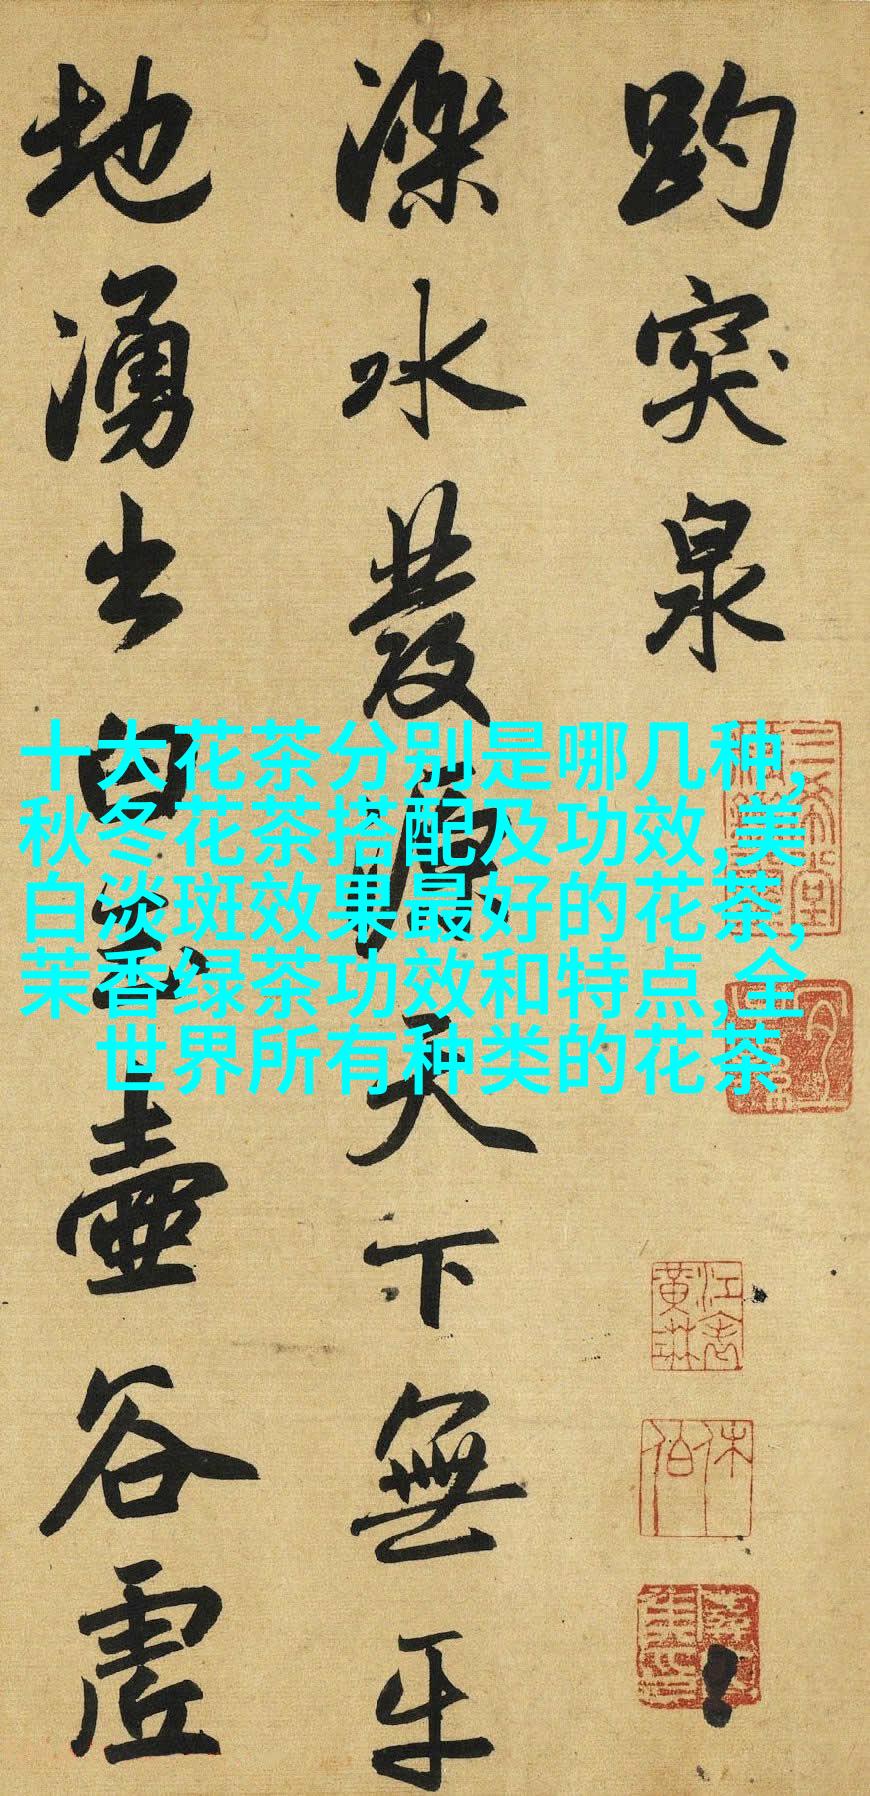 趵突泉
濼水發源天下無平
地湧出白玉壺谷虛
十大花茶分别是哪几种,
秋冬花茶搭配及功效,美
白淡斑效果最好的花茶,
茉香绿茶功效和特点,全
世界所有种类的花茶
江表
黃琳
休伯